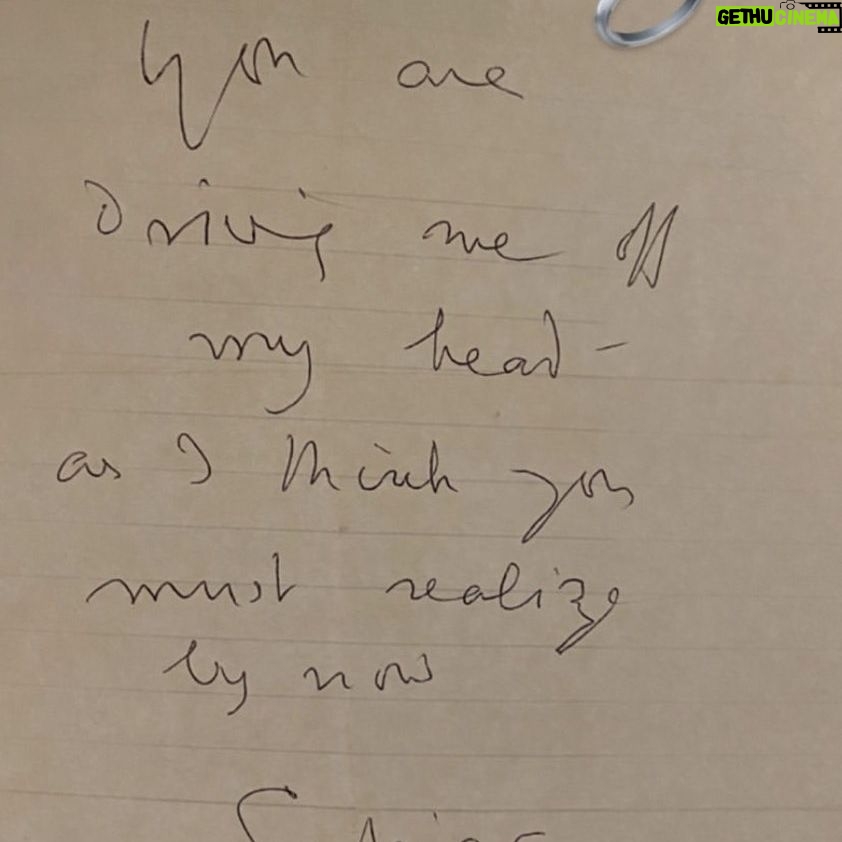 GETHUCINEMA
You are
Driving me off
my head -
as I think you
must realize
by now